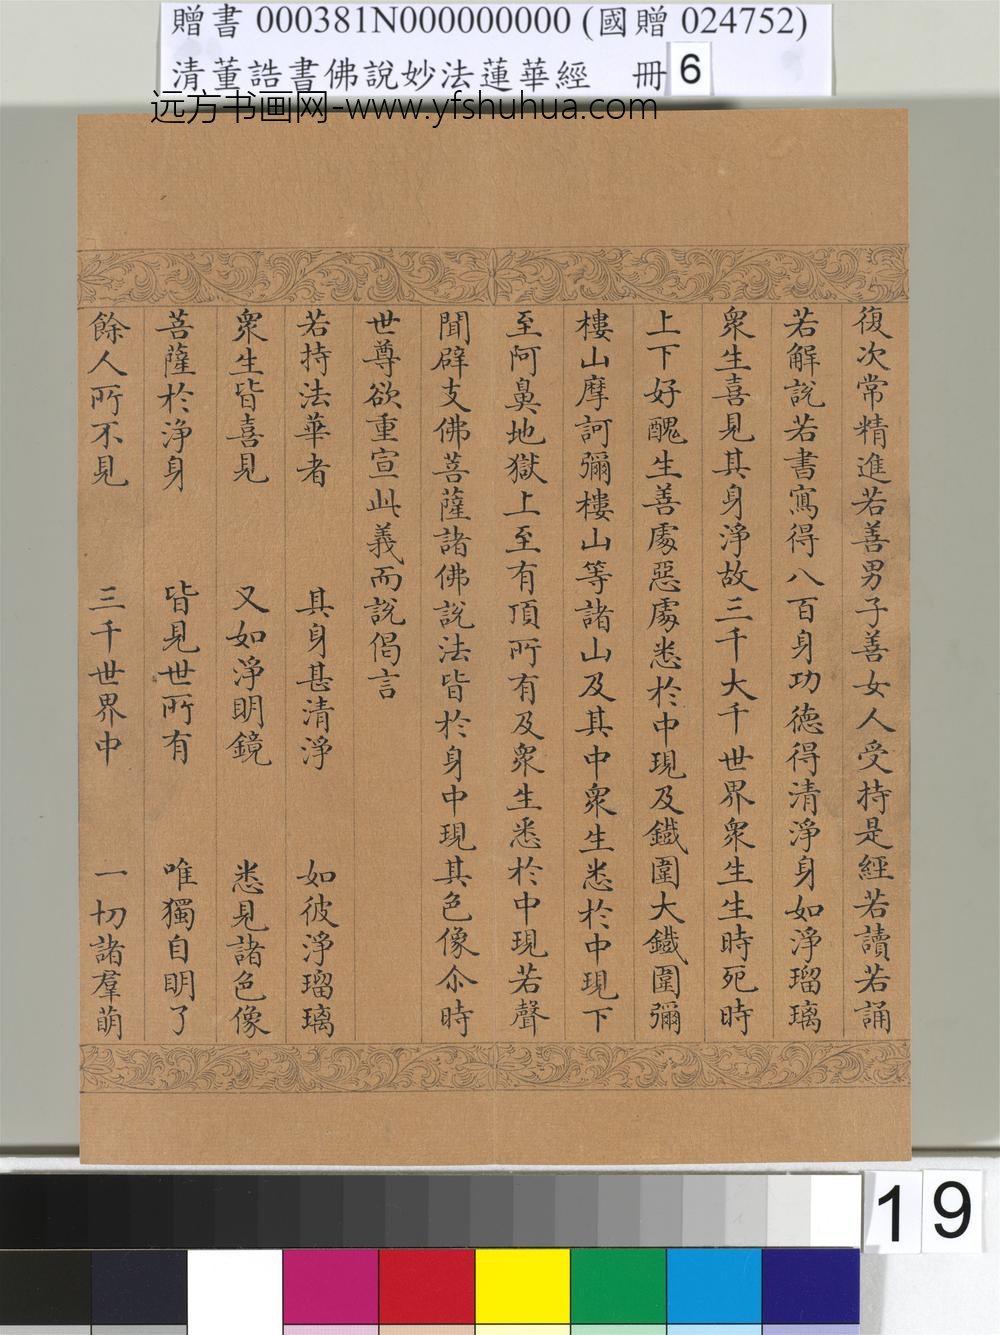 贈書 000381N000000000 (國贈 024752)
清董誥書佛說妙法蓮華經 冊 6
远方书画网-www.yfshuhua.com
復次常精進若善男子善女人受持是經若讀若誦
若解說若書寫得八百身功德得清淨身如淨瑠璃
衆生喜見其身淨故三千大千世界衆生生時死時
上下好醜生善處惡處悉於中現及鐵圍大鐵圍彌
樓山摩訶彌樓山等諸山及其中衆生悉於中現下
至阿鼻地獄上至有頂所有及衆生悉於中現若聲
聞辟支佛菩薩諸佛說法皆於身中現其色像尒時
世尊欲重宣此義而說偈言
若持法華者 其身甚清淨 如彼淨瑠璃
衆生皆喜見 又如淨明鏡 悉見諸色像
菩薩於淨身 皆見世所有 唯獨自明了
餘人所不見 三千世界中 一切諸羣萌
19